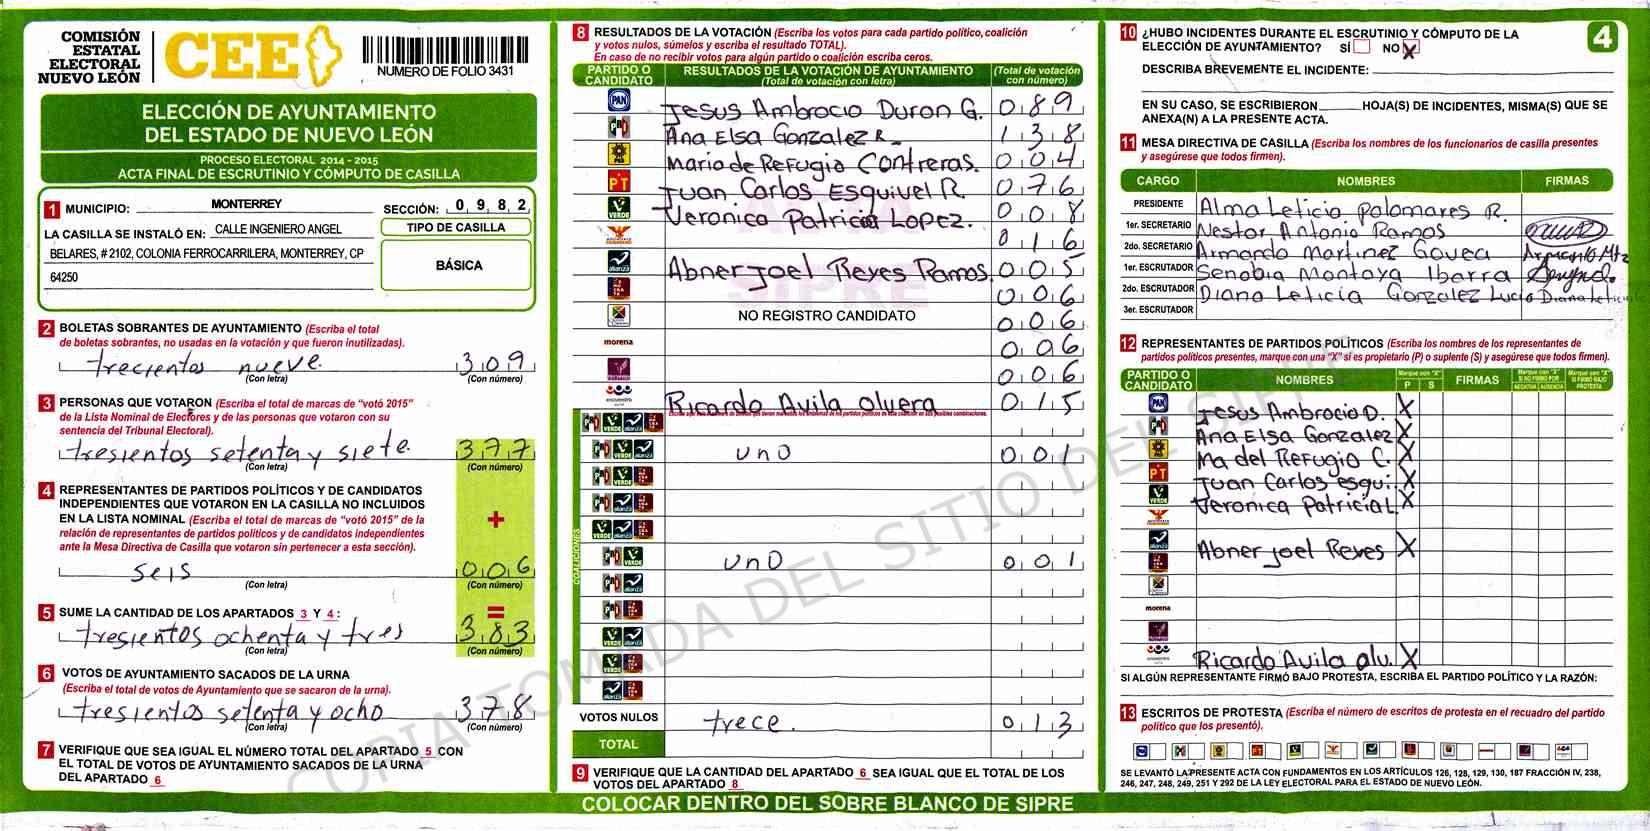 COMISIÓN
ESTATAL
ELECTORAL
NUEVO LEÓN
CEE
NUMERO DE FOLIO 3431
ELECCIÓN DE AYUNTAMIENTO
DEL ESTADO DE NUEVO LEÓN
PROCESO ELECTORAL 2014 - 2015
ACTA FINAL DE ESCRUTINIO Y CÓMPUTO DE CASILLA
1 MUNICIPIO: MONTERREY SECCIÓN: 0 9 8 2
LA CASILLA SE INSTALÓ EN: CALLE INGENIERO ANGEL
BELARES, # 2102, COLONIA FERROCARRILERA, MONTERREY, CP
64250
TIPO DE CASILLA
BÁSICA
2 BOLETAS SOBRANTES DE AYUNTAMIENTO (Escriba el total
de boletas sobrantes, no usadas en la votación y que fueron inutilizadas).
trecientos nueve. 3 0 9
(Con letra) (Con número)
3 PERSONAS QUE VOTARON (Escriba el total de marcas de "votó 2015"
de la Lista Nominal de Electores y de las personas que votaron con su
sentencia del Tribunal Electoral).
tresientos setenta y siete. 3 7 7
(Con letra) (Con número)
4 REPRESENTANTES DE PARTIDOS POLÍTICOS Y DE CANDIDATOS
INDEPENDIENTES QUE VOTARON EN LA CASILLA NO INCLUIDOS
EN LA LISTA NOMINAL (Escriba el total de marcas de "votó 2015" de la
relación de representantes de partidos políticos y de candidatos independientes
ante la Mesa Directiva de Casilla que votaron sin pertenecer a esta sección).
+
seis 0 0 6
(Con letra) (Con número)
5 SUME LA CANTIDAD DE LOS APARTADOS 3 Y 4 : =
tresientos ochenta y tres 3 8 3
(Con letra) (Con número)
6 VOTOS DE AYUNTAMIENTO SACADOS DE LA URNA
(Escriba el total de votos de Ayuntamiento que se sacaron de la urna).
tresientos setenta y ocho 3 7 8
(Con letra) (Con número)
7 VERIFIQUE QUE SEA IGUAL EL NÚMERO TOTAL DEL APARTADO 5 CON
EL TOTAL DE VOTOS DE AYUNTAMIENTO SACADOS DE LA URNA
DEL APARTADO 6
8 RESULTADOS DE LA VOTACIÓN (Escriba los votos para cada partido político, coalición
y votos nulos, súmelos y escriba el resultado TOTAL).
En caso de no recibir votos para algún partido o coalición escriba ceros.
PARTIDO O CANDIDATO RESULTADOS DE LA VOTACIÓN DE AYUNTAMIENTO (Total de votación con letra) (Total de votación con número)
PAN Jesus Ambrocio Duron G. 0 8 9
PRI Ana Elsa Gonzalez R. 1 3 8
PRD Maria de Refugio Contreras. 0 0 4
PT Juan Carlos Esquivel R. 0 7 6
VERDE Veronica Patricia Lopez. 0 0 8
0 1 6
alianza Abner Joel Reyes Ramos. 0 0 5
0 0 6
NO REGISTRO CANDIDATO 0 0 6
morena 0 0 6
0 0 6
encuentro Ricardo Avila Olvera 0 1 5
COALICIONES
uno 0 0 1
uno 0 0 1
VOTOS NULOS trece. 0 1 3
TOTAL
9 VERIFIQUE QUE LA CANTIDAD DEL APARTADO 6 SEA IGUAL QUE EL TOTAL DE LOS
VOTOS DEL APARTADO 8
COLOCAR DENTRO DEL SOBRE BLANCO DE SIPRE
4
10 ¿HUBO INCIDENTES DURANTE EL ESCRUTINIO Y CÓMPUTO DE LA
ELECCIÓN DE AYUNTAMIENTO? SÍ NO X
DESCRIBA BREVEMENTE EL INCIDENTE:
EN SU CASO, SE ESCRIBIERON HOJA(S) DE INCIDENTES, MISMA(S) QUE SE
ANEXA(N) A LA PRESENTE ACTA.
11 MESA DIRECTIVA DE CASILLA (Escriba los nombres de los funcionarios de casilla presentes
y asegúrese que todos firmen).
CARGO NOMBRES FIRMAS
PRESIDENTE Alma Leticia Palomares R.
1er. SECRETARIO Nestor Antonio Ramos
2do. SECRETARIO Armando Martinez Govea Armando Mtz
1er. ESCRUTADOR Senobia Montoya Ibarra
2do. ESCRUTADOR Diana Leticia Gonzalez Lucio Diana Leticia
3er. ESCRUTADOR
12 REPRESENTANTES DE PARTIDOS POLÍTICOS (Escriba los nombres de los representantes de
partidos políticos presentes, marque con una "X" si es propietario (P) o suplente (S) y asegúrese que todos firmen).
PARTIDO O CANDIDATO NOMBRES Marque con "X" P S FIRMAS Marque con "X" SI NO FIRMÓ POR NEGATIVA AUSENCIA Marque con "X" SI FIRMÓ BAJO PROTESTA
PAN Jesus Ambrocio D. X
PRI Ana Elsa Gonzalez X
PRD Ma del Refugio C. X
PT Juan Carlos esqui. X
VERDE Veronica Patricia L. X
alianza Abner Joel Reyes X
morena
Ricardo Avila Olv. X
SI ALGÚN REPRESENTANTE FIRMÓ BAJO PROTESTA, ESCRIBA EL PARTIDO POLÍTICO Y LA RAZÓN:
13 ESCRITOS DE PROTESTA (Escriba el número de escritos de protesta en el recuadro del partido
político que los presentó).
SE LEVANTÓ LA PRESENTE ACTA CON FUNDAMENTOS EN LOS ARTÍCULOS 126, 128, 129, 130, 187 FRACCIÓN IV, 238,
246, 247, 248, 249, 251 Y 292 DE LA LEY ELECTORAL PARA EL ESTADO DE NUEVO LEÓN.
COPIA TOMADA DEL SITIO DEL SIPRE